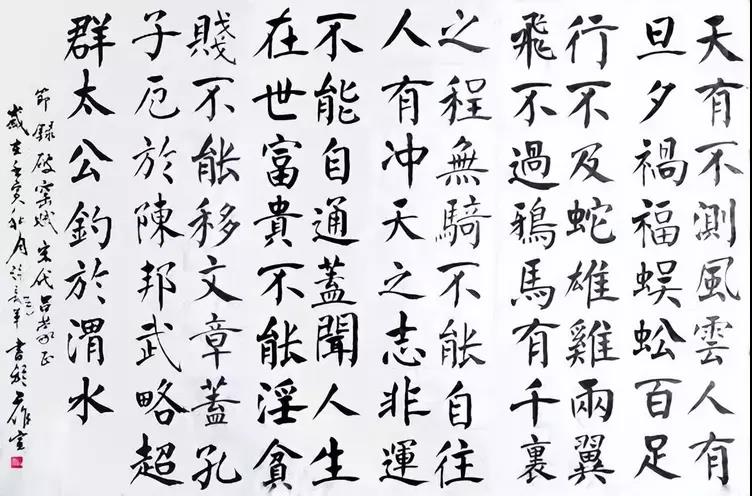 天有不測風雲人有
旦夕禍福蜈蚣百足
行不及蛇雄雞兩翼
飛不過鴉馬有千裏
之程無騎不能自往
人有冲天之志非運
不能自通蓋聞人生
在世富貴不能淫貧
賤不能移文章蓋孔
子厄於陳邦武略超
群太公釣於渭水
節錄破窯賦宋代呂蒙正
歲在壬寅秋月書於